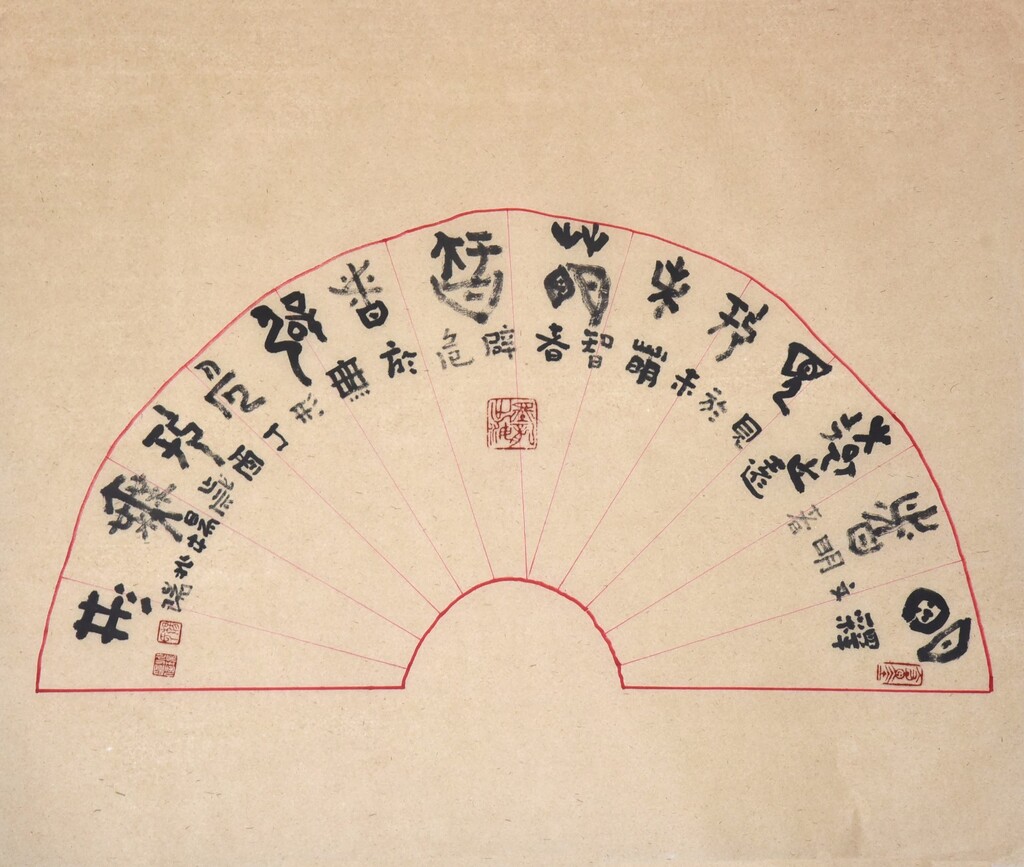 明者遠見於未萌智者避危於無形
釋文明者遠見於未萌智者避危於無形丁酉